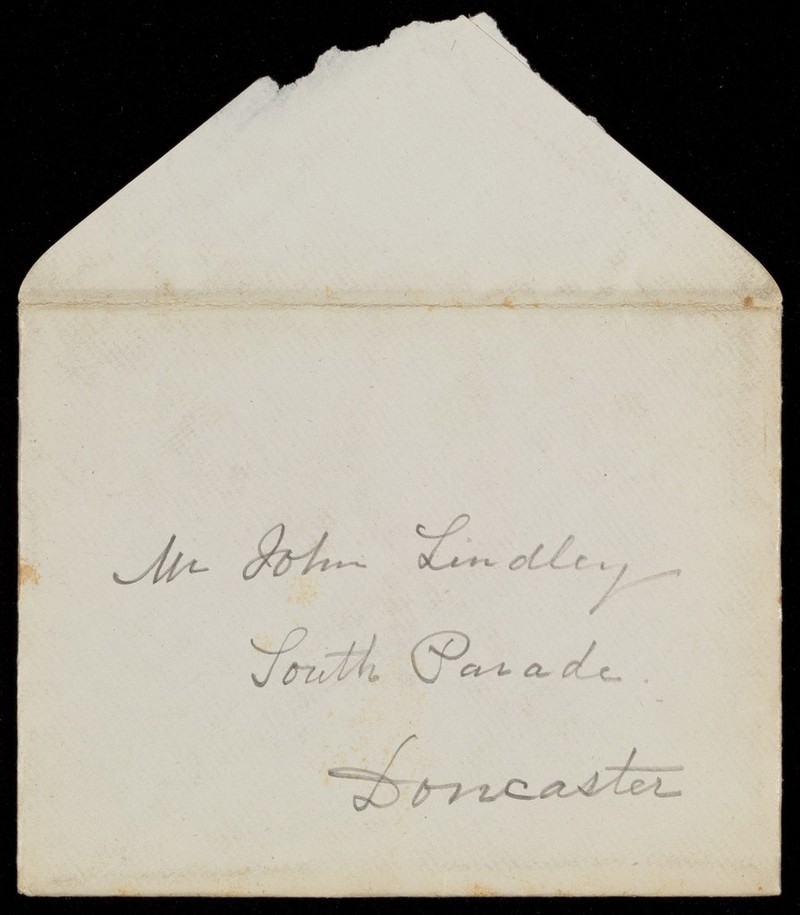 Mr John Lindley
South Parade.
Doncaster